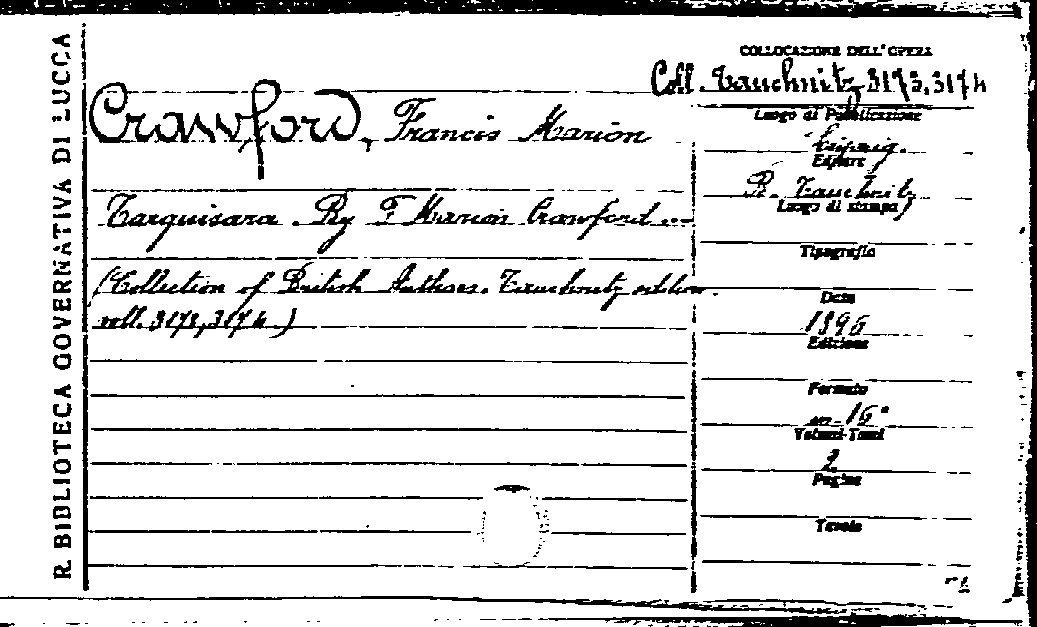 R. BIBLIOTECA GOVERNATIVA DI LUCCA
Crawford, Francis Marion
Tarquisara. By F Marion Crawford ...
(Collection of British Authors. Tauchnitz edition.
voll. 3173, 3174.)
COLLOCAZIONE DELL'OPERA
Coll. Tauchnitz 3173, 3174
Luogo di Pubblicazione
Leipzig.
Editore
B. Tauchnitz
Luogo di stampa
Tipografia
Data
1896
Edizione
Formato
in-16°
Volumi-Tomi
2
Pagine
Tavole